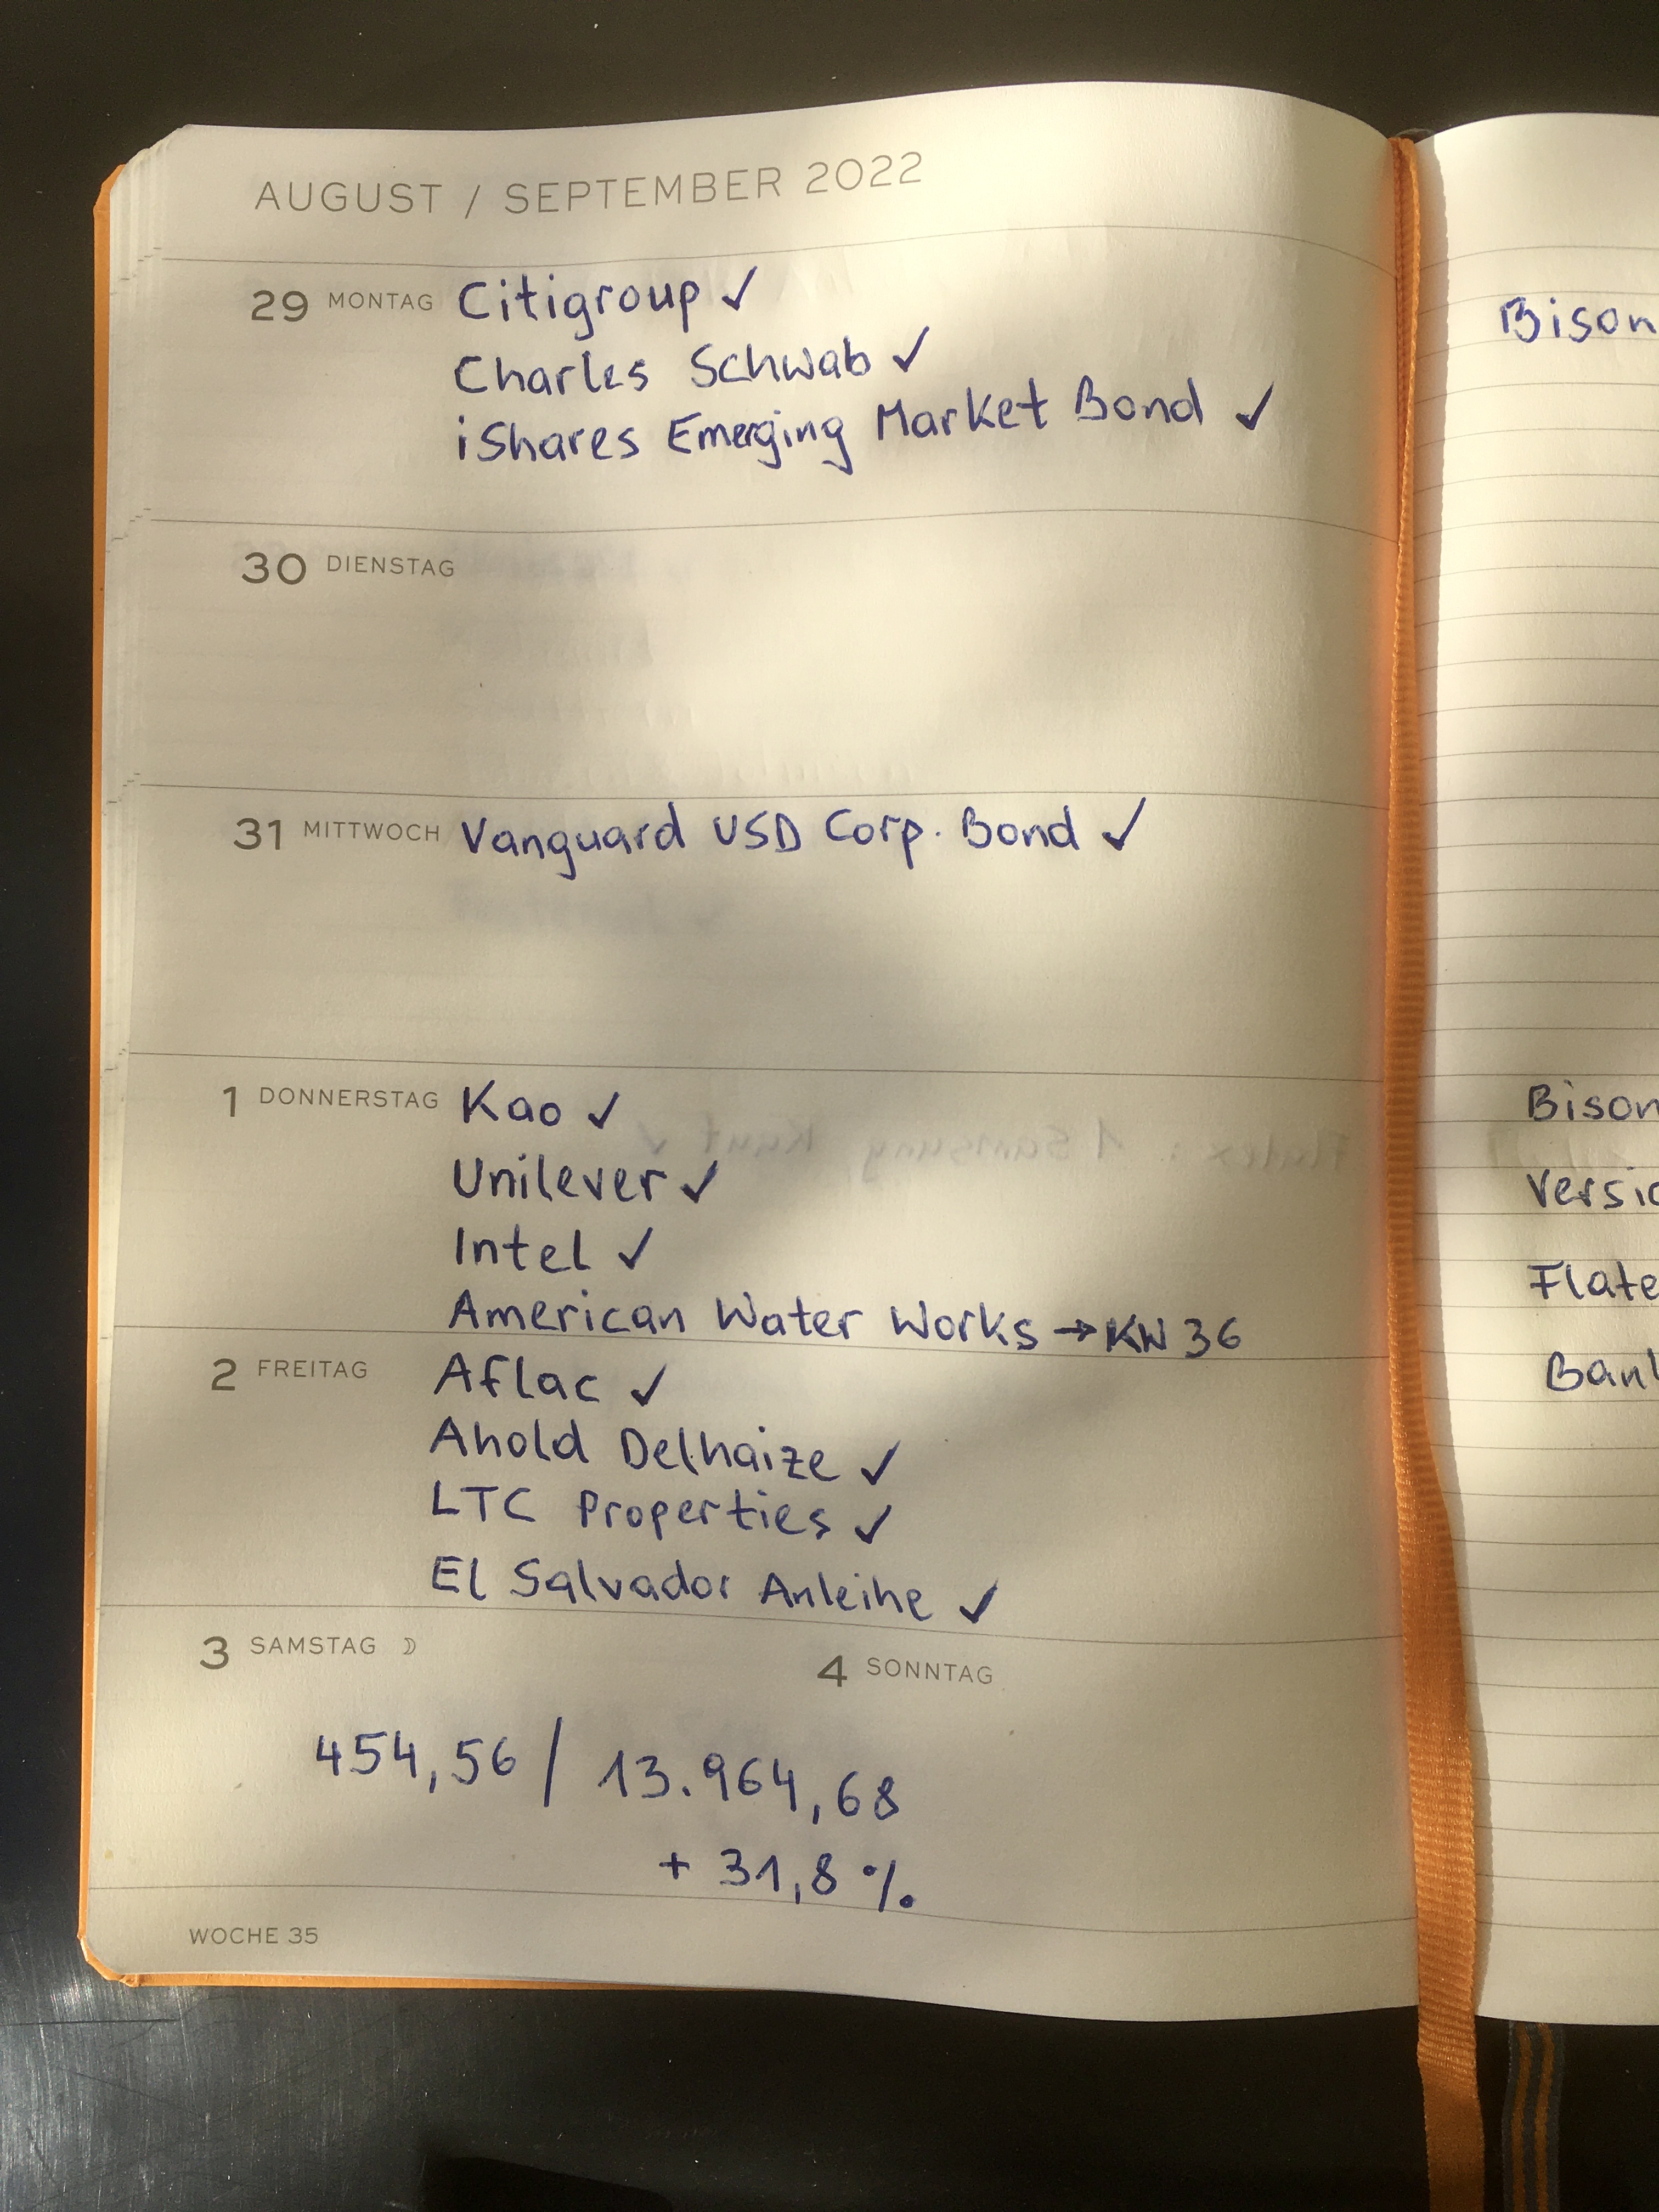 AUGUST / SEPTEMBER 2022
29 MONTAG Citigroup ✓
Charles Schwab ✓
iShares Emerging Market Bond ✓
30 DIENSTAG
31 MITTWOCH Vanguard USD Corp. Bond ✓
1 DONNERSTAG Kao ✓
Unilever ✓
Intel ✓
American Water Works → KW 36
2 FREITAG Aflac ✓
Ahold Delhaize ✓
LTC Properties ✓
El Salvador Anleihe ✓
3 SAMSTAG ☽ 4 SONNTAG
454,56 / 13.964,68
+ 31,8 %
WOCHE 35
Bison
Bison